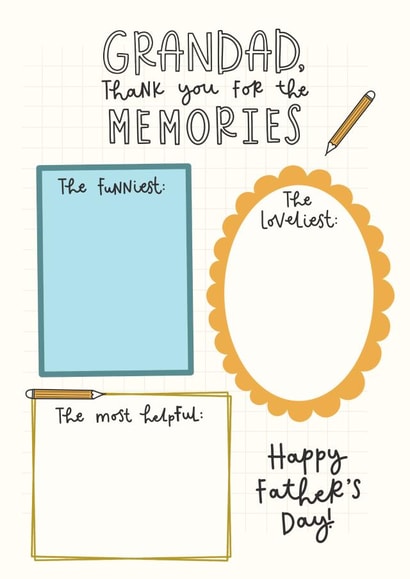 GRANDAD,
THANK you FOR the
MEMORIES
The FUNNIEST:
The
LOVELIEST:
The most helpful:
Happy
Father's
Day!